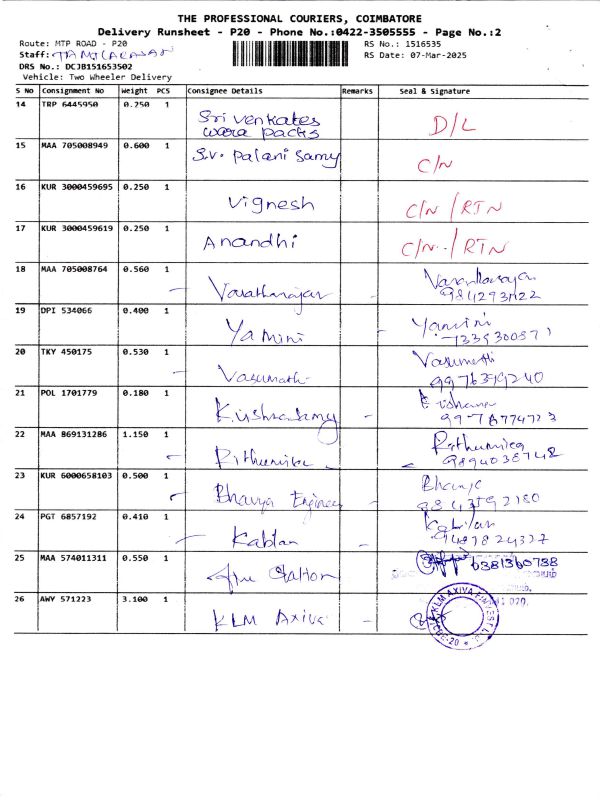 THE PROFESSIONAL COURIERS, COIMBATORE
Delivery Runsheet - P20 - Phone No.:0422-3505555 - Page No.:2
Route: MTP ROAD - P20 RS No.: 1516535
Staff: RS Date: 07-Mar-2025
DRS No.: DCJB151653502
Vehicle: Two Wheeler Delivery
S No Consignment No Weight PCS Consignee Details Remarks Seal & Signature
14 TRP 6445950 0.250 1 Sri Venkates D/L
wara packs
15 MAA 705008949 0.600 1 S.V. Palani Samy C/N
16 KUR 3000459695 0.250 1 Vignesh C/N / RTN
17 KUR 3000459619 0.250 1 Anandhi C/N../RTN
18 MAA 705008764 0.560 1 Varatharajan
19 DPI 534066 0.400 1 Yamini Yamini
20 TKY 450175 0.530 1 Vasumathi Vasumathi
9976399240
21 POL 1701779 0.180 1 Krishnasamy
22 MAA 869131286 1.150 1 Rithumika Rithumika
9894038742
23 KUR 6000658103 0.500 1 Bhavya
24 PGT 6857192 0.410 1 Kabilan
25 MAA 574011311 0.550 1 6381360738
26 AWY 571223 3.100 1 KLM Axiva KLM AXIVA FINVEST